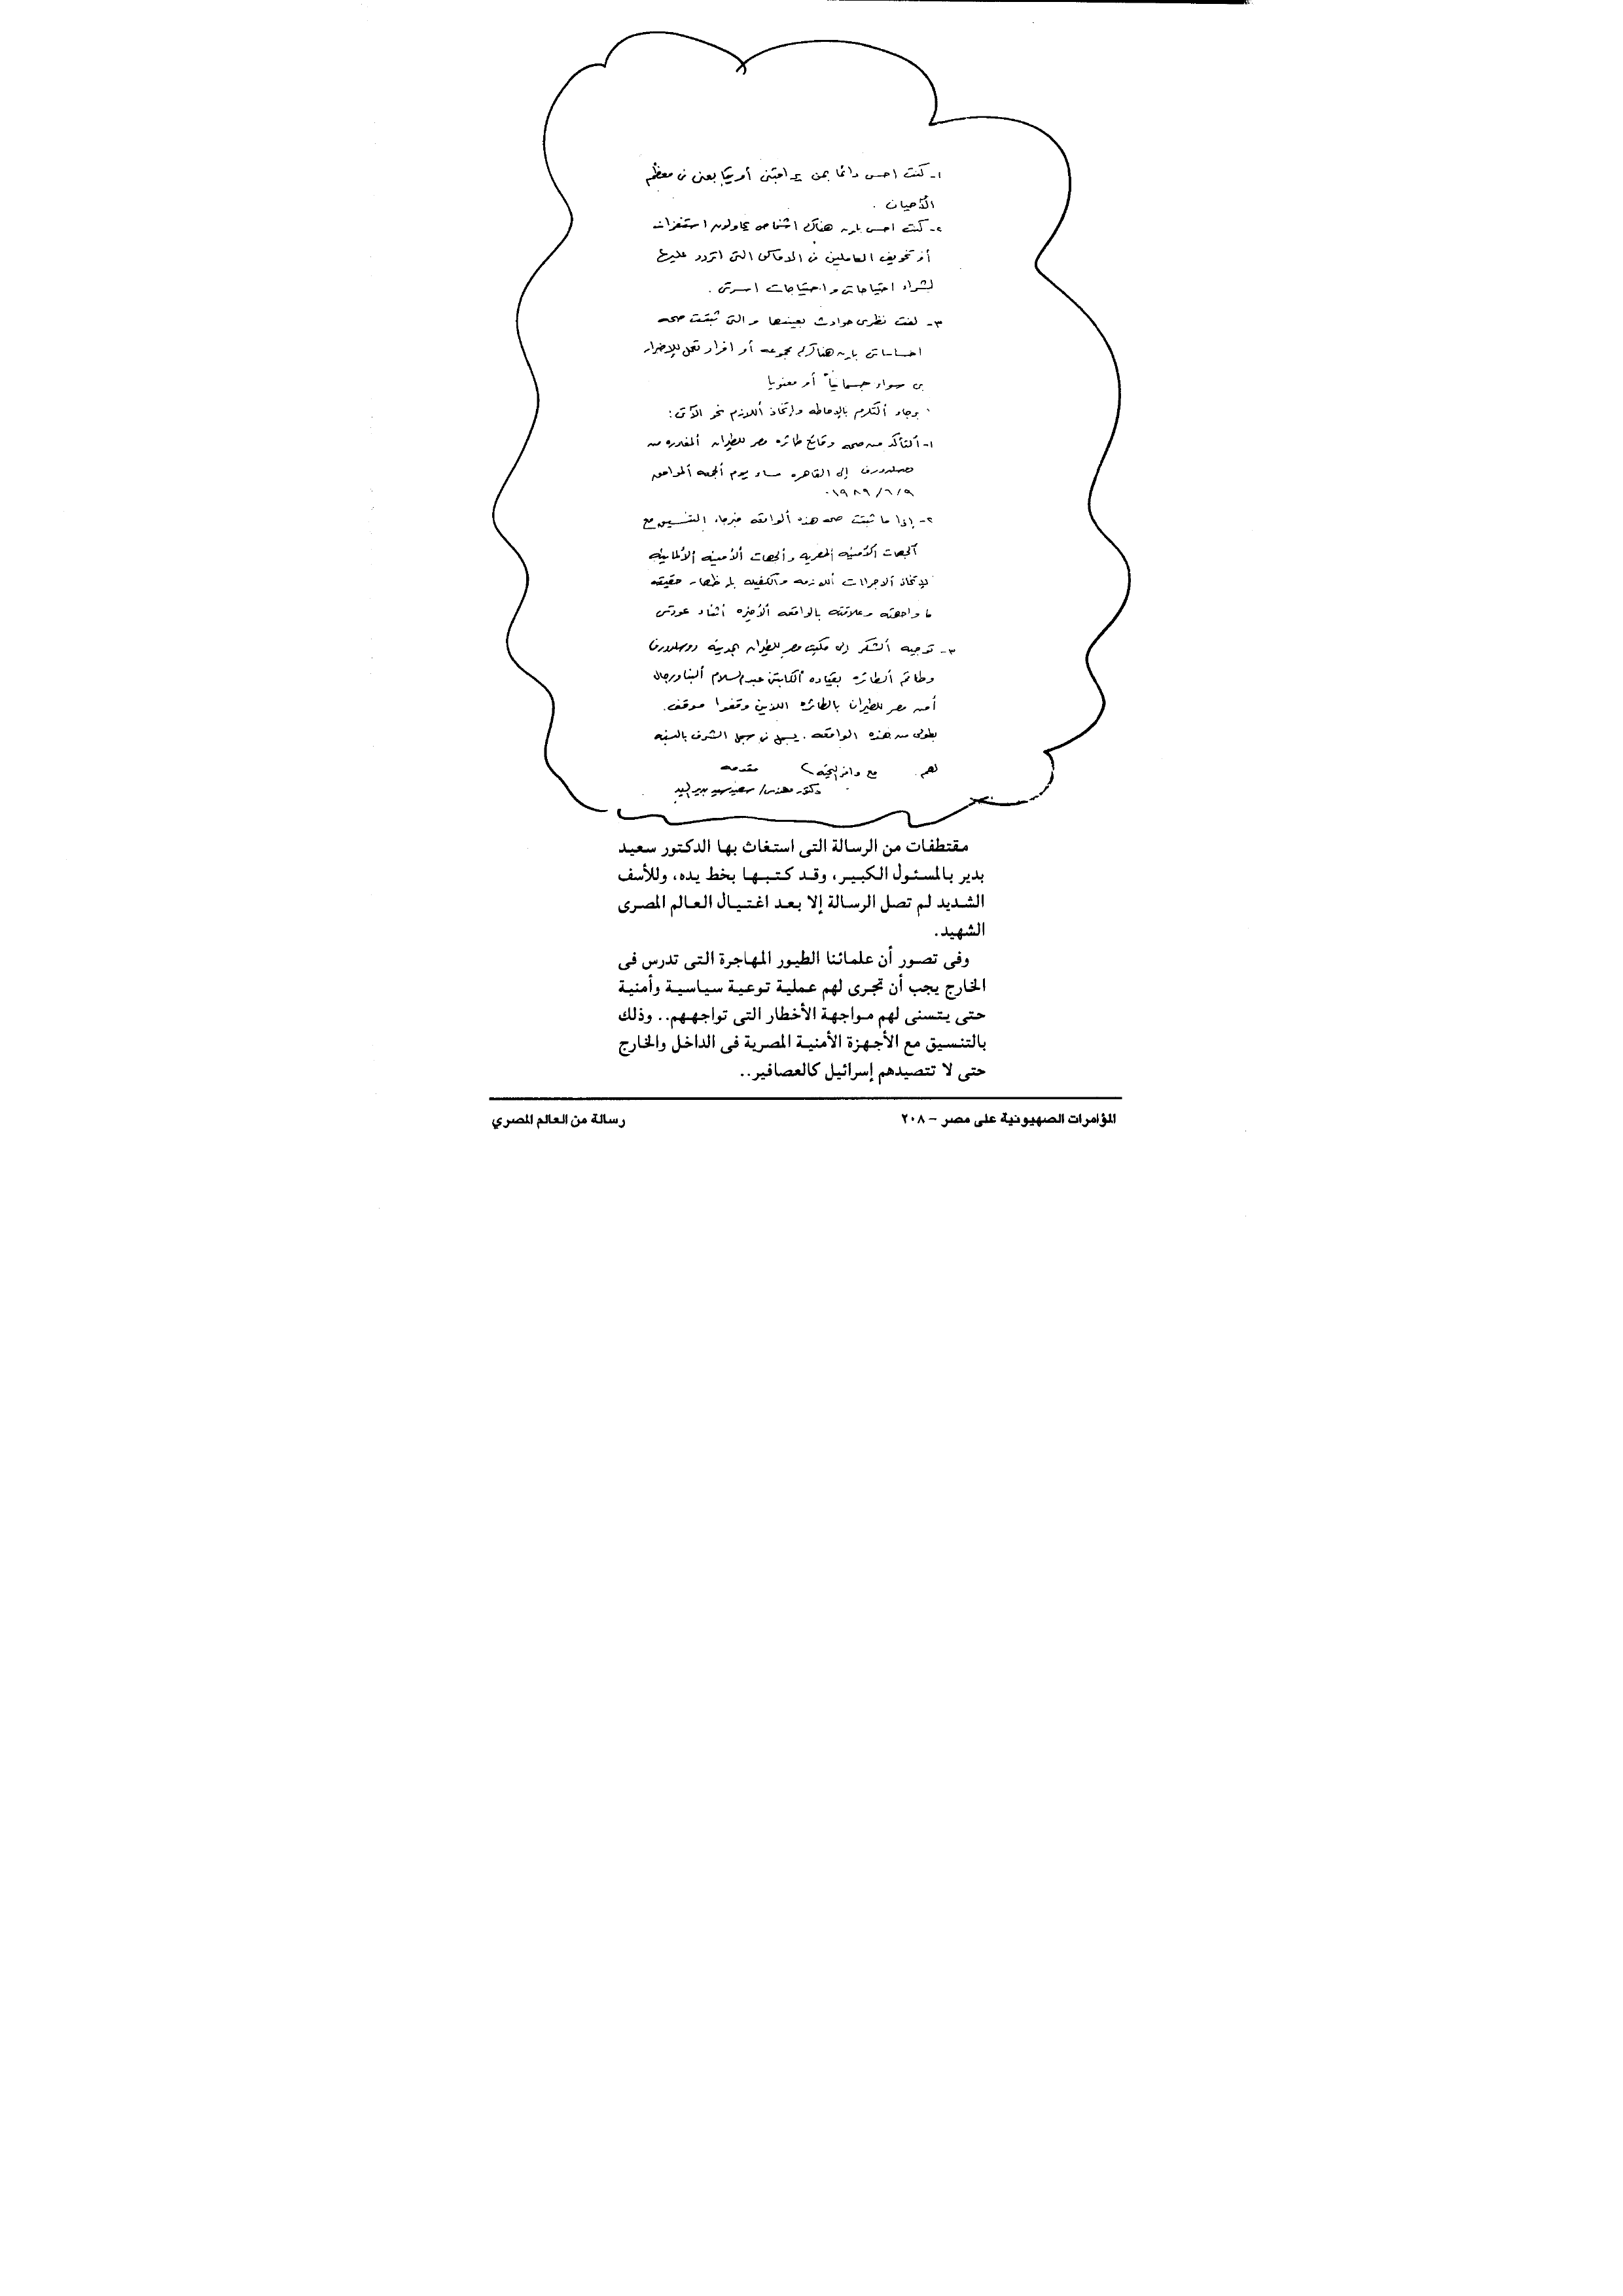 ١- كنت احس دائما بمن يراقبنى أو يتابعنى فى معظم
الأحيان .
٢- كنت احس بان هناك اشخاص يحاولون استفزازات
أو تخويف العاملين فى الاماكن التى اتردد عليها
لشراء احتياجاتى واحتياجات اسرتى .
٣- لفت نظرى حوادث بعينها والتى ثبتت صحه
احساساتى بان هناك مجموعه أو افراد تعمل للإضرار
بى سواء جسمانياً أو معنويا
برجاء ألتكرم بالإحاطه وإتخاذ أللازم نحو الآتى :
١- ألتأكد من صحه وقائع طائره مصر للطيران ألمغادره من
إلى القاهره مساء يوم ألجمعه ألموافق
١٩٨٩/٦/٩٠
٢- إذا ما ثبتت صحه هذه ألواقعه فبرجاء التنسيق مع
ألجهات الأمنيه المصريه وألجهات ألأمنيه الألمانيه
لإتخاذ ألاجراءات أللازمه والكفيله بإظهار حقيقه
ما واجهته وعلاقته بالواقعه ألأخيره أثناء عودتى
٣- توجيه ألشكر إلى مكتب مصر للطيران بمدينه دوسلدورف
وطاقم ألطائره بقياده ألكابتن عبد السلام ألبنا ورجال
أمن مصر للطيران بالطائره اللذين وقفوا موقف
بطولى من هذه الواقعه . يسجل فى سجل الشرف بالنسبه
لهم . مع وافر التحيه مقدمه
دكتور مهندس/ سعيد سيد بدير السيد
مقتطفات من الرسالة التى استغاث بها الدكتور سعيد
بدير بالمسئول الكبير، وقد كتبها بخط يده، وللأسف
الشديد لم تصل الرسالة إلا بعد اغتيال العالم المصرى
الشهيد.
وفى تصور أن علمائنا الطيور المهاجرة التى تدرس فى
الخارج يجب أن تجرى لهم عملية توعية سياسية وأمنية
حتى يتسنى لهم مواجهة الأخطار التى تواجههم.. وذلك
بالتنسيق مع الأجهزة الأمنية المصرية فى الداخل والخارج
حتى لا تتصيدهم إسرائيل كالعصافير..
المؤامرات الصهيونية على مصر - ٢٠٨
رسالة من العالم المصري